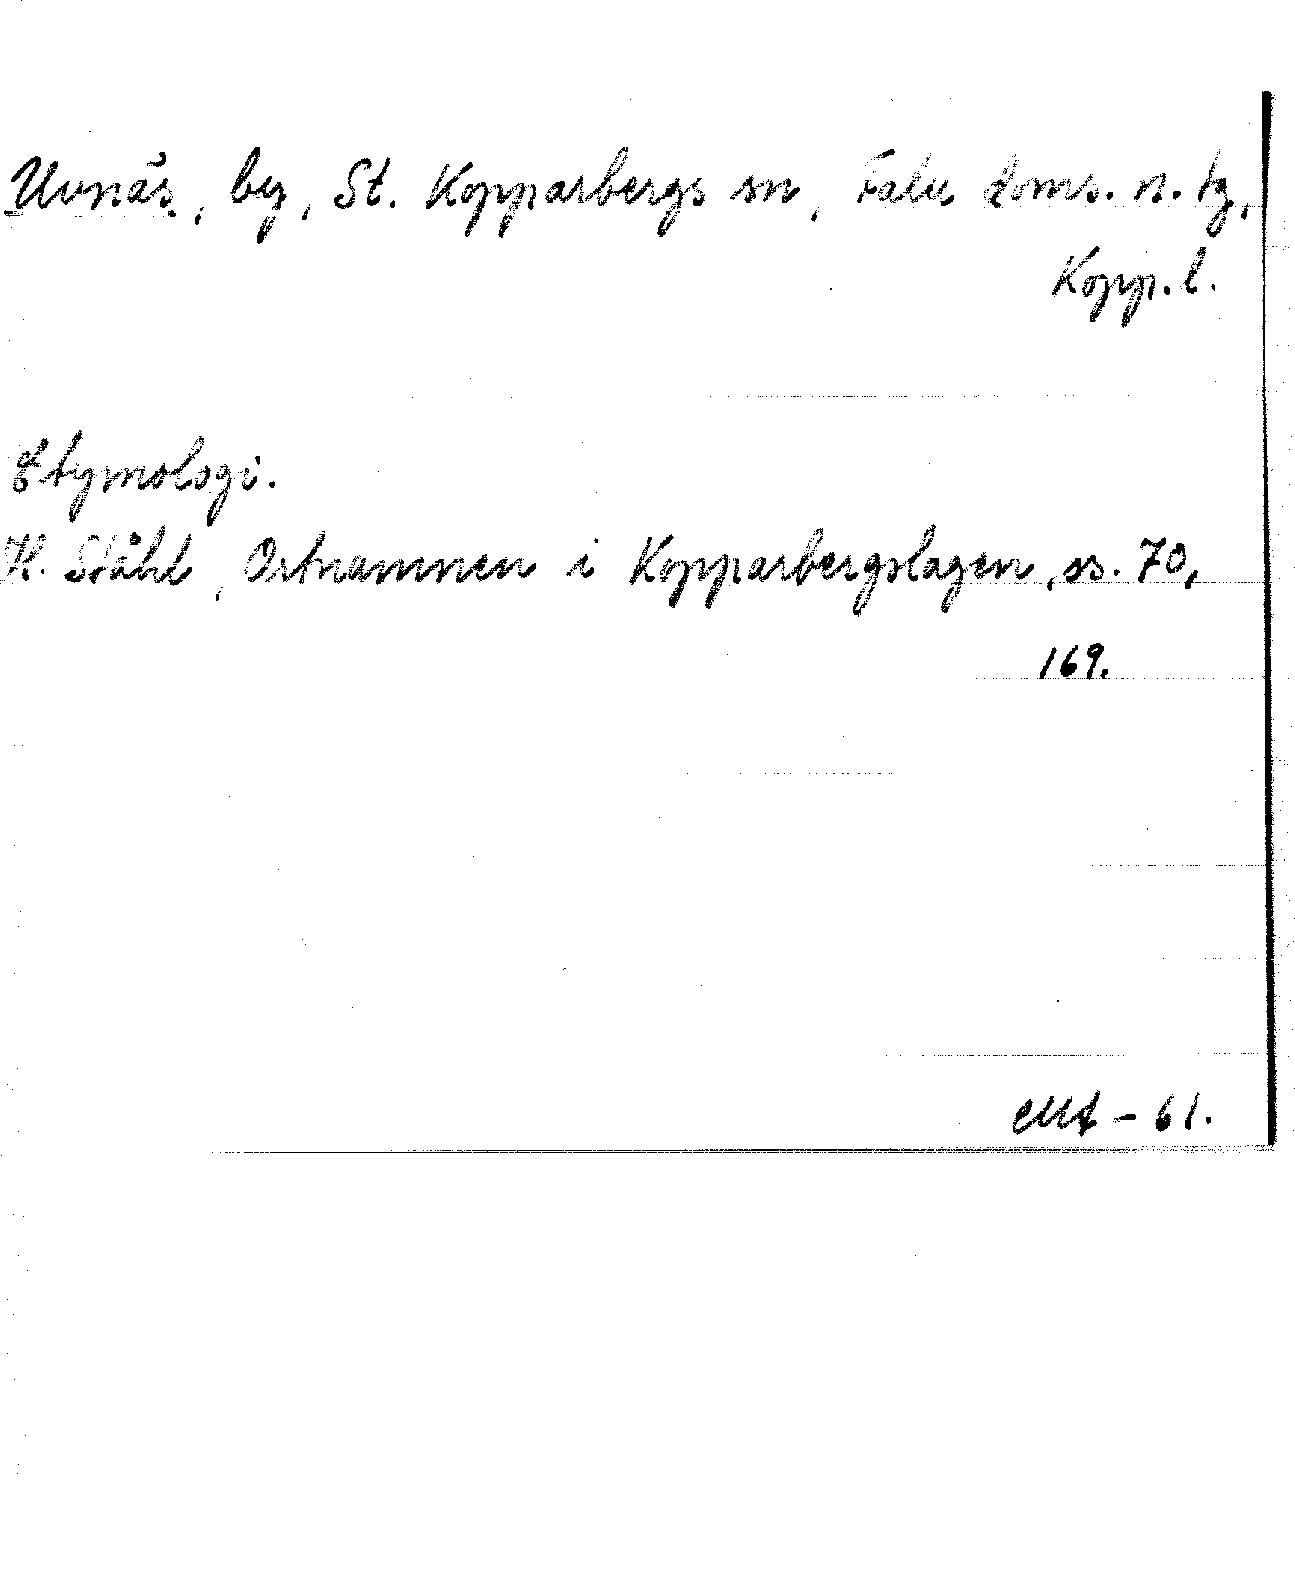 Uvnäs, by, St. Kopparbergs sn, Falu doms. n. tg,
Kopp. l.
Etymologi.
H. Ståhl, Ortnamnen i Kopparbergslagen, ss. 70,
169.
- 61.